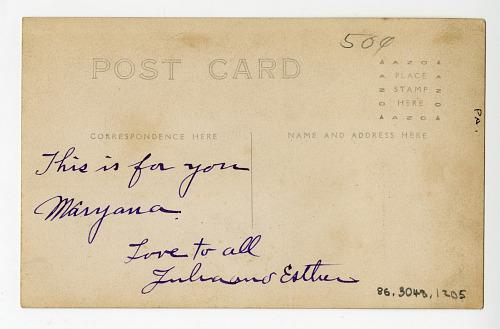 50¢
POST CARD
AZO
PLACE
STAMP
HERE
AZO
AZO
AZO
PA.
CORRESPONDENCE HERE
NAME AND ADDRESS HERE
This is for you
Maryana.
Love to all
Julia and Esther
86.3043.1205